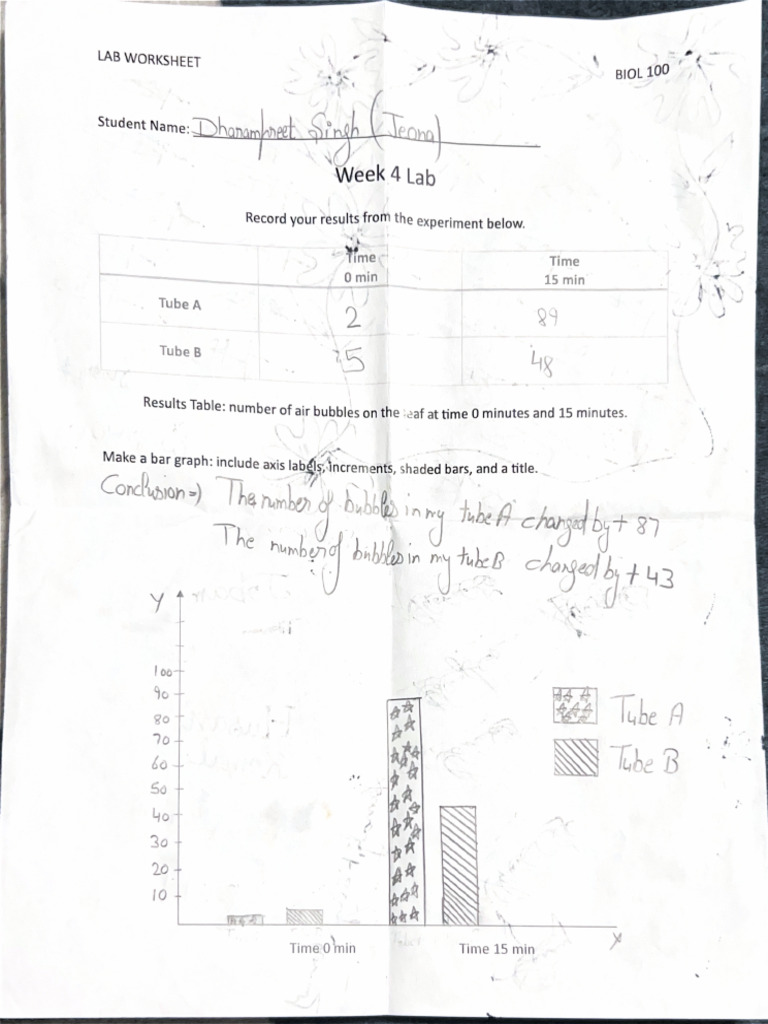 LAB WORKSHEET
BIOL 100
Student Name: Dharampreet Singh (Jeona)
Week 4 Lab
Record your results from the experiment below.
Time Time
0 min 15 min
Tube A 2 89
Tube B 5 48
Results Table: number of air bubbles on the leaf at time 0 minutes and 15 minutes.
Make a bar graph: include axis labels, increments, shaded bars, and a title.
Conclusion=) The number of bubbles in my tube A changed by + 87
The number of bubbles in my tube B changed by + 43
Y
100
90
80
70
60
50
40
30
20
10
Tube A
Tube B
X
Time 0 min Time 15 min